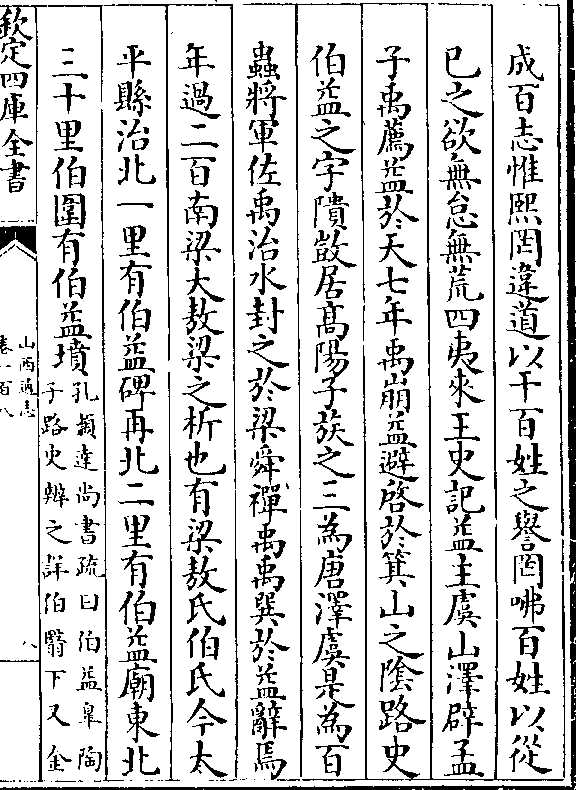 成百志惟熙罔違道以干百姓之譽罔咈百姓以從
已之欲無怠無荒四夷來王史記益主虞山澤辟孟
子禹薦益於天七年禹崩益避啓於箕山之隂路史
伯益之字隤敳居髙陽子族之三為唐澤虞是為百
蟲將軍佐禹治水封之於梁舜禪禹禹巽於益辭焉
年過二百南梁大敖梁之析也有梁敖氏伯氏今太
平縣治北一里有伯益碑再北二里有伯益廟東北
三十里伯圍有伯益墳孔穎達尚書疏曰伯益臯陶
子路史辨之詳伯翳下又金
欽定四庫全書
山西通志
卷一百八
八